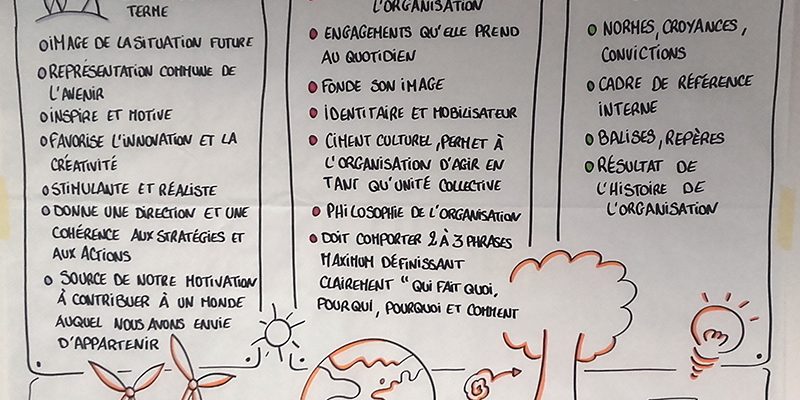 TERME
IMAGE DE LA SITUATION FUTURE
REPRÉSENTATION COMMUNE DE
L'AVENIR
INSPIRE ET MOTIVE
FAVORISE L'INNOVATION ET LA
CRÉATIVITÉ
STIMULANTE ET RÉALISTE
DONNE UNE DIRECTION ET UNE
COHÉRENCE AUX STRATÉGIES ET
AUX ACTIONS
SOURCE DE NOTRE MOTIVATION
À CONTRIBUER À UN MONDE
AUQUEL NOUS AVONS ENVIE
D'APPARTENIR
L'ORGANISATION
ENGAGEMENTS QU'ELLE PREND
AU QUOTIDIEN
FONDE SON IMAGE
IDENTITAIRE ET MOBILISATEUR
CIMENT CULTUREL, PERMET À
L'ORGANISATION D'AGIR EN
TANT QU'UNITÉ COLLECTIVE
PHILOSOPHIE DE L'ORGANISATION
DOIT COMPORTER 2 À 3 PHRASES
MAXIMUM DÉFINISSANT
CLAIREMENT "QUI FAIT QUOI,
POUR QUI, POURQUOI ET COMMENT
NORMES, CROYANCES,
CONVICTIONS
CADRE DE RÉFÉRENCE
INTERNE
BALISES, REPÈRES
RÉSULTAT DE
L'HISTOIRE DE
L'ORGANISATION